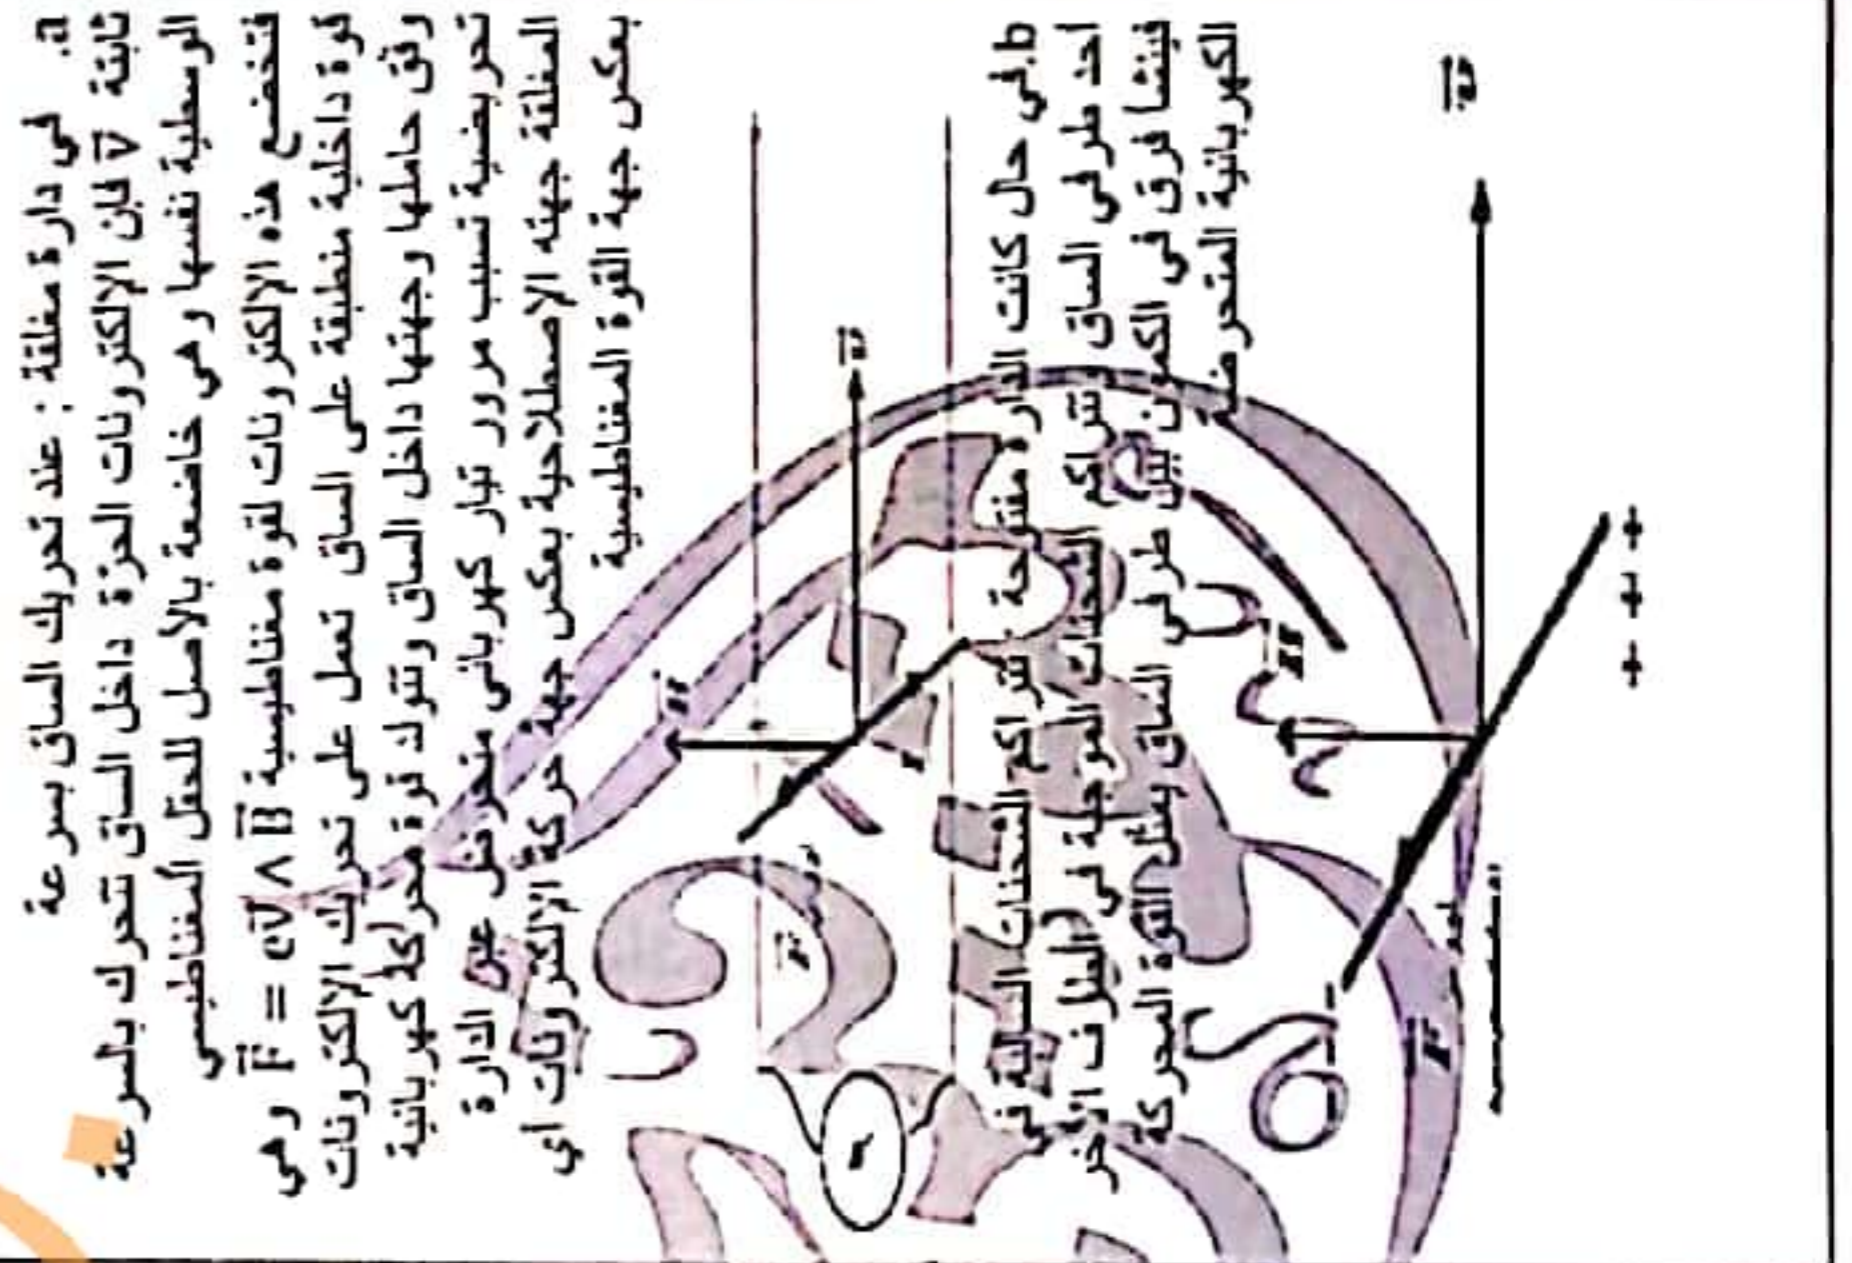 a. في دارة مغلقة : عند تحريك الساق بسرعة
ثابتة v⃗ فإن الإلكترونات الحرّة داخل الساق تتحرك بالسرعة
الوسطية نفسها وهي خاضعة بالأصل للحقل المغناطيسي
فتخضع هذه الإلكترونات لقوة مغناطيسية F⃗ = ev⃗ ∧ B⃗ وهي
قوة داخلية منطبقة على الساق تعمل على تحريك الإلكترونات
وفق حاملها وجهتها داخل الساق وتتولد قوة محركة كهربائية
تحريضية تسبب مرور تيار كهربائي متحرض عبر الدارة
المغلقة جهته الاصطلاحية بعكس جهة حركة الإلكترونات أي
بعكس جهة القوة المغناطيسية
B⃗
v⃗
b. في حال كانت الدارة مفتوحة : تتراكم الشحنات السالبة في
أحد طرفي الساق وتتراكم الشحنات الموجبة في الطرف الآخر
فينشأ فرق في الكمون بين طرفي الساق يمثل القوة المحركة
الكهربائية المتحرضة
B⃗
v⃗
+ + +